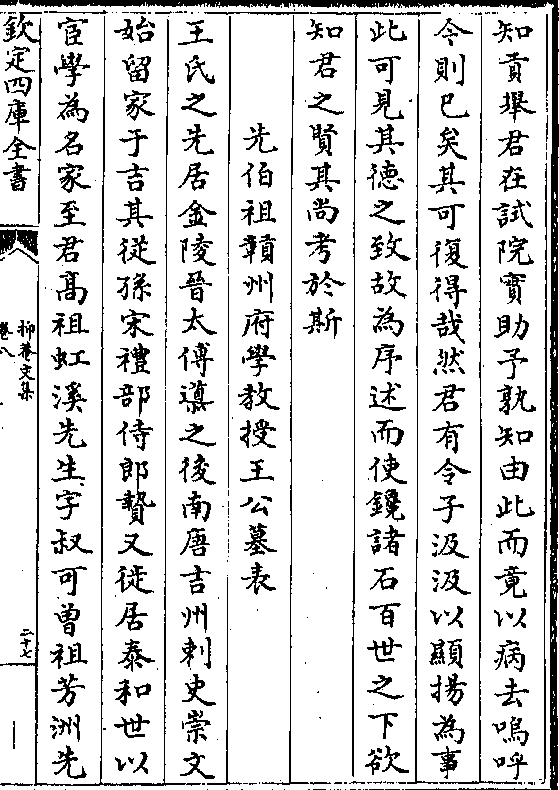 知貢舉君在試院實助予孰知由此而竟以病去嗚呼
今則已矣其可復得哉然君有令子汲汲以顯揚為事
此可見其德之致故為序述而使鑱諸石百世之下欲
知君之賢其尚考於斯
先伯祖贑州府學教授王公墓表
王氏之先居金陵晉太傅導之後南唐吉州刺史崇文
始留家于吉其從孫宋禮部侍郎贄又徙居泰和世以
宦學為名家至君髙祖虹溪先生字叔可曾祖芳洲先
欽定四庫全書
抑菴文集
卷八
二十七